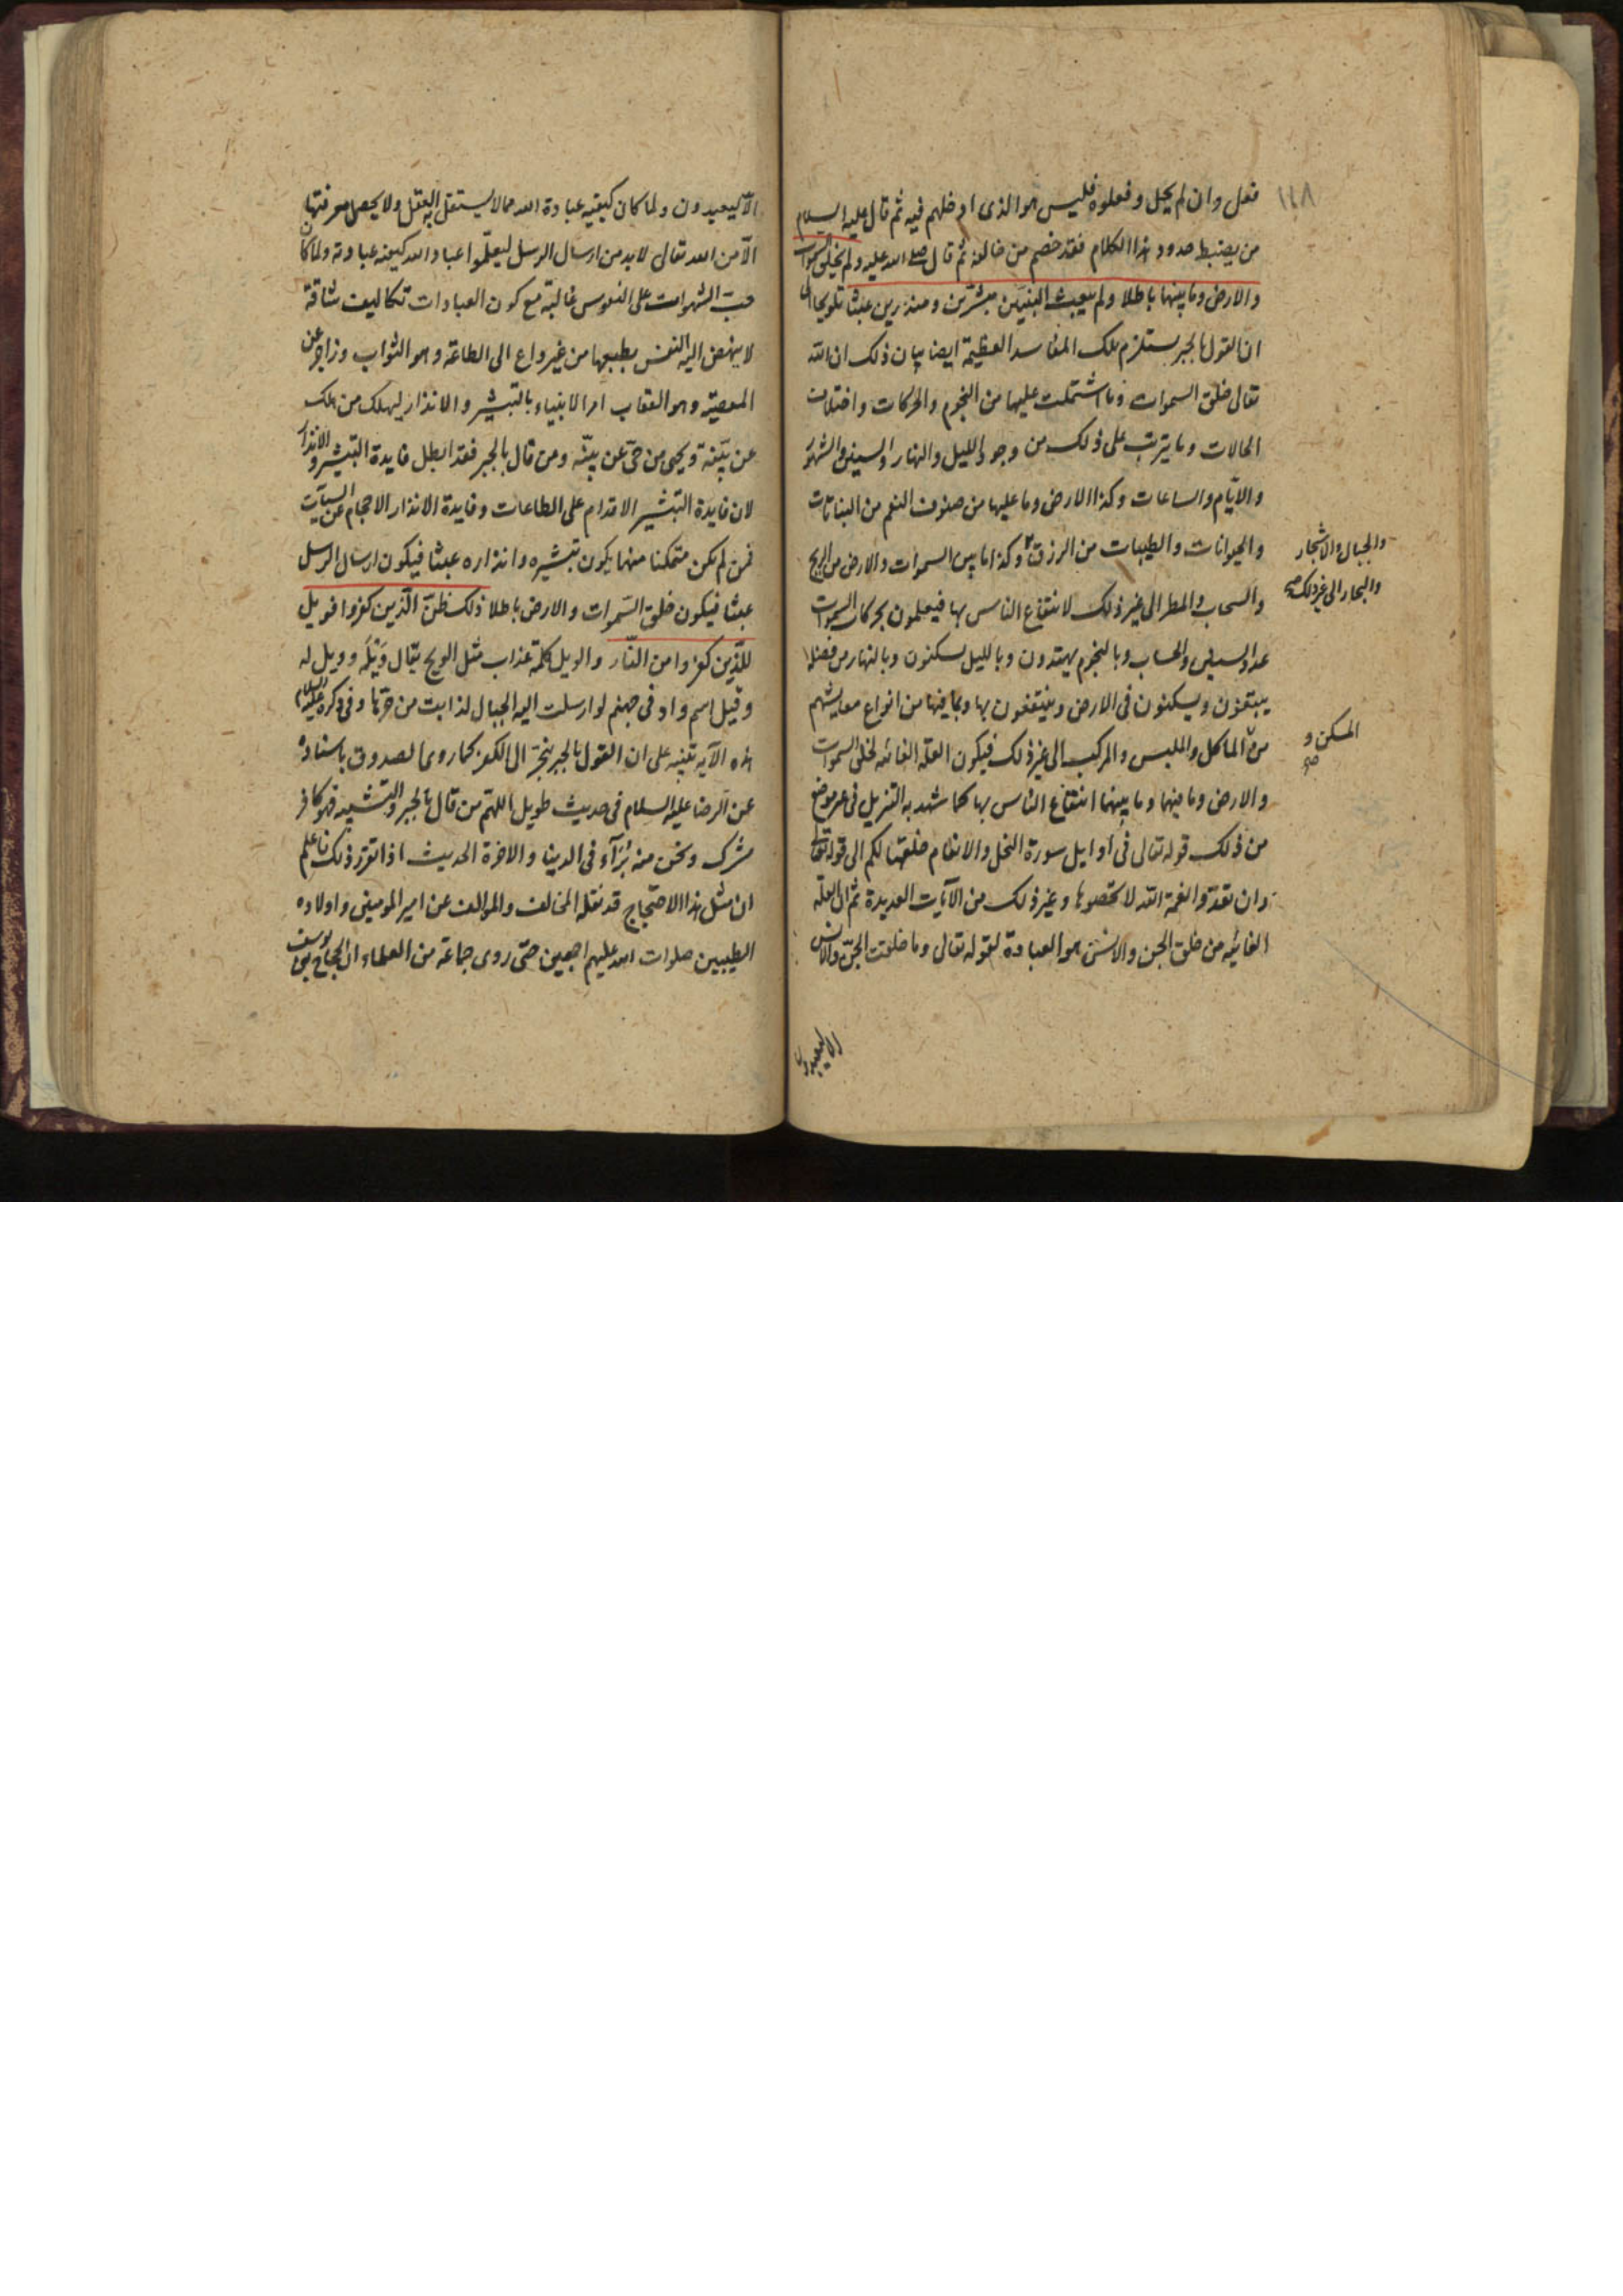 ١٤٨
فعل وان لم يحل وفعلوه فليس هو الذى ادخلهم فيه ثم قال عليه السلام
من يضبط حدود هذا الكلام فقد خصم من خالفه ثم قال صلى الله عليه ولم يخلق السموات
والارض وما بينهما باطلا ولم يبعث النبيين مبشرين ومنذرين عبثا تلويحا الى
ان القول بالجبر يستلزم تلك المفاسد العظيمة ايضا بيان ذلك ان الله
تعالى خلق السموات وما اشتملت عليها من النجوم والحركات واختلاف
الحالات وما يترتب على ذلك من وجود الليل والنهار والسنين والشهور
والايام والساعات وكذا الارض وما عليها من صنوف النعم من النباتات
والحيوانات والطيبات من الرزق وكذا ما بين السموات والارض من الريح
والجبال والاشجار
والبحار الى غير ذلك صح
والسحاب والمطر الى غير ذلك لانتفاع الناس بها فيعلمون بحركات السموات
عدد السنين والحساب وبالنجوم يهتدون وبالليل يسكنون وبالنهار من فضله
يبتغون ويسكنون فى الارض وينتفعون بها وبما فيها من انواع معايشهم
من الماكل والملبس والمركب الى غير ذلك فيكون العلة الغائيه لخلق السموات
المسكن و
صح
والارض وما فيهما وما بينهما انتفاع الناس بها كما شهد به التنزيل فى غير موضع
من ذلك قوله تعالى فى اوايل سورة النحل والانعام خلقها لكم الى قوله تعالى
وان تعدوا نعمة الله لا تحصوها وغير ذلك من الآيات العديدة ثم ان العلة
الغائيه من خلق الجن والانس هو العبادة لقوله تعالى وما خلقت الجن والانس
الا ليعبدون
الا ليعبدون ولما كان كيفيه عبادة الله مما لا يستقل اليه العقل ولا يحصل معرفتها
الا من الله تعالى لابد من ارسال الرسل ليعلموا عباد الله كيفيه عبادته ولما كان
حب الشهوات على النفوس غالبة مع كون العبادات تكاليف شاقة
لا ينهض اليه النفس بطبعها من غير داع الى الطاعة وهو الثواب وزاجر عن
المعصية وهو العقاب امر الانبياء بالتبشير والانذار ليهلك من هلك
عن بينة ويحيى من حى عن بينه ومن قال بالجبر فقد ابطل فايدة التبشير والانذار
لان فايدة التبشير الاقدام على الطاعات وفايدة الانذار الاحجام عن السيآت
فمن لم يكن متمكنا منهما يكون تبشيره وانذاره عبثا فيكون ارسال الرسل
عبثا فيكون خلق السموات والارض باطلا ذلك ظن الذين كفروا فويل
للذين كفروا من النار والويل كلمة عذاب مثل الويح يقال ويله وويل له
وقيل اسم واد فى جهنم لو ارسلت اليه الجبال لذابت من حرها وفى ذكره عليه السلام
هذه الآيه تنبيه على ان القول بالجبر ينجر الى الكفر كما روى الصدوق باسناده
عن الرضا عليه السلام فى حديث طويل اللهم من قال بالجبر والتشبيه فهو كافر
مشرك ونحن منه برآء فى الدنيا والاخرة الحديث اذا تقرر ذلك فاعلم
ان مثل هذا الاحتجاج قد نقله المخالف والموالف عن امير المومنين واولاده
الطيبين صلوات الله عليهم اجمعين حتى روى جماعة من العلماء ان الحجاج بن يوسف